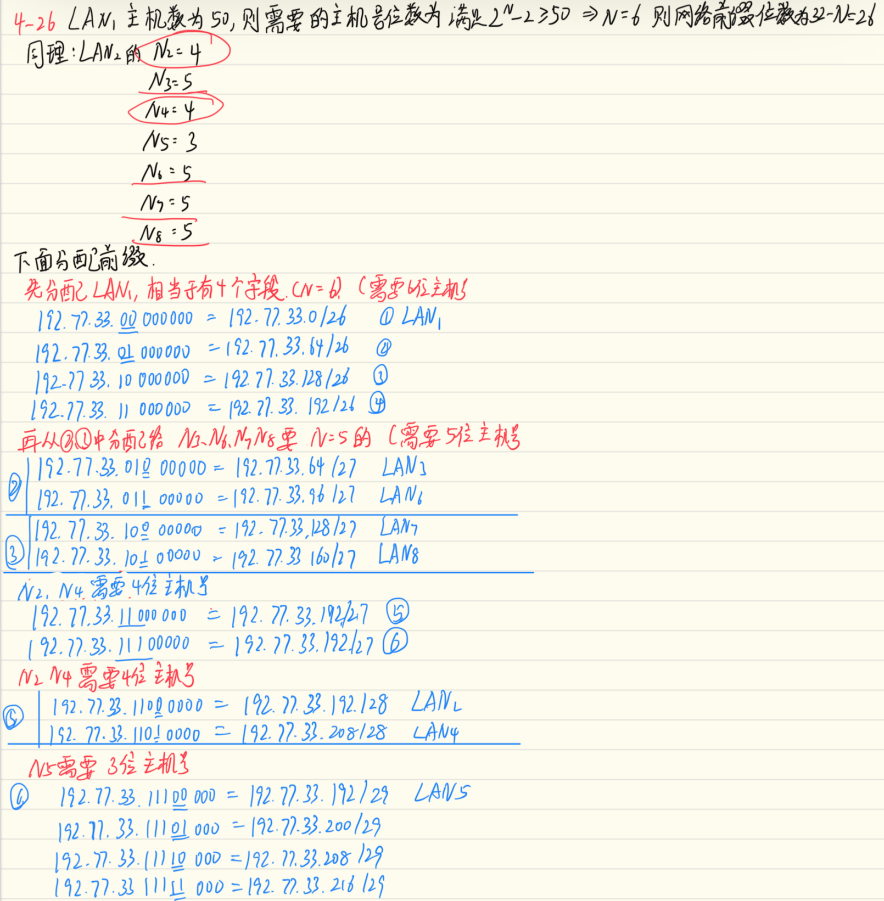 4-26 LAN₁ 主机数为50,则需要的主机号位数为 满足2^N-2≥50 ⇒ N=6 则网络前缀位数为32-N=26
同理:LAN₂的 N₂=4
N₃=5
N₄=4
N₅=3
N₆=5
N₇=5
N₈=5
下面分配前缀.
先分配LAN₁,相当于有4个字段.(N=6) (需要6位主机号
192.77.33.00 000000 = 192.77.33.0/26 ① LAN₁
192.77.33.01 000000 = 192.77.33.64/26 ②
192.77.33.10 000000 = 192.77.33.128/26 ③
192.77.33.11 000000 = 192.77.33.192/26 ④
再从②①中分配给 N₃、N₆、N₇ N₈要 N=5的 (需要5位主机号
② 192.77.33.010 00000 = 192.77.33.64/27 LAN₃
192.77.33.011 00000 = 192.77.33.96/27 LAN₆
192.77.33.100 00000 = 192.77.33.128/27 LAN₇
③ 192.77.33.101 00000 = 192.77.33 160/27 LAN8
N₂, N₄ 需要4位主机号
192.77.33.11000000 = 192.77.33.192/27 ⑤
192.77.33.11100000 = 192.77.33.192/27 ⑥
N₂ N₄ 需要4位主机号
⑤ 192.77.33.1100 0000 = 192.77.33.192/28 LAN₂
192.77.33.1101 0000 = 192.77.33.208/28 LAN₄
N₅需要 3位主机号
⑥ 192.77.33.11100 000 = 192.77.33.192/29 LAN5
192.77.33.11101 000 = 192.77.33.200/29
192.77.33.11110 000 = 192.77.33.208/29
192.77.33 11111 000 = 192.77.33.216/29